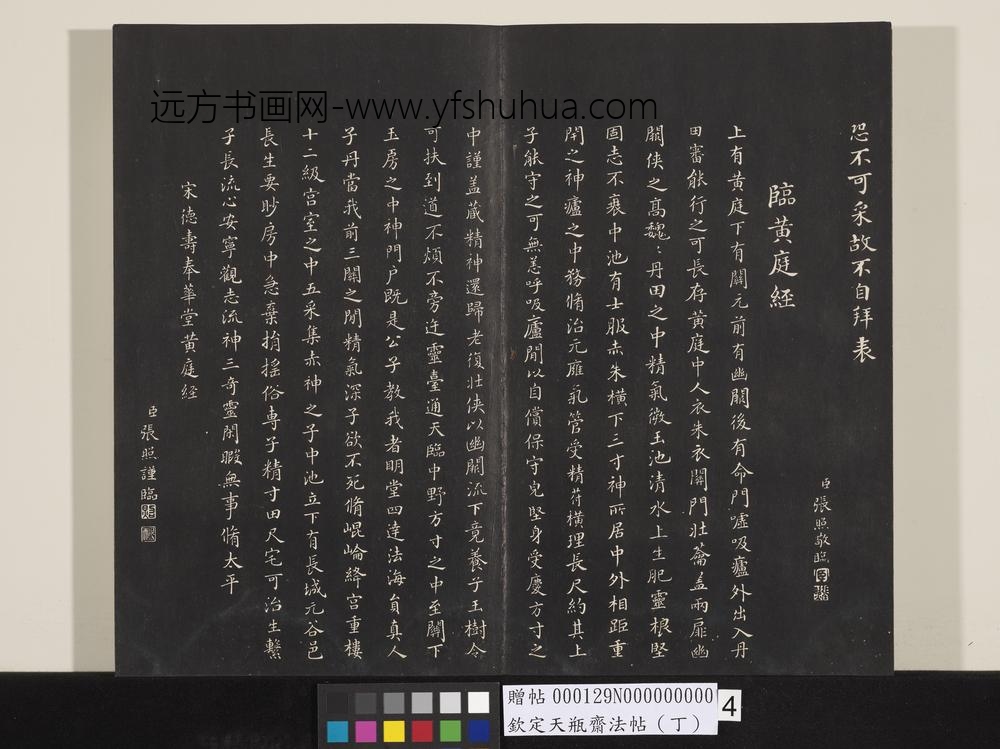 远方书画网-www.yfshuhua.com
恐不可采故不自拜表
臣張照敬臨
臨黃庭経
上有黃庭下有關元前有幽關後有命門噓吸廬外出入丹
田審能行之可長存黃庭中人衣朱衣關門壯蘥盖兩扉幽
關俠之髙魏〻丹田之中精氣微玉池清水上生肥靈根堅
固志不衰中池有士服赤朱橫下三寸神所居中外相距重
閇之神廬之中務脩治元雍氣管受精苻橫理長尺約其上
子能守之可無恙呼吸廬閒以自償保守皃堅身受慶方寸之
中謹盖藏精神還歸老復壯俠以幽闕流下竟養子玉樹令
可扶到道不煩不旁迕靈臺通天臨中野方寸之中至關下
玉房之中神門户既是公子教我者明堂四達法海貟真人
子丹當我前三關之閒精氣深子欲不死脩崐崘絳宫重樓
十二級宫室之中五采集赤神之子中池立下有長城元谷邑
長生要眇房中急棄捐搖俗専子精寸田尺宅可治生繫
子長流心安寧觀志流神三奇靈閑暇無事脩太平
宋德壽奉華堂黃庭経
臣張照謹臨
贈帖 000129N000000000
欽定天瓶齋法帖（丁）
4